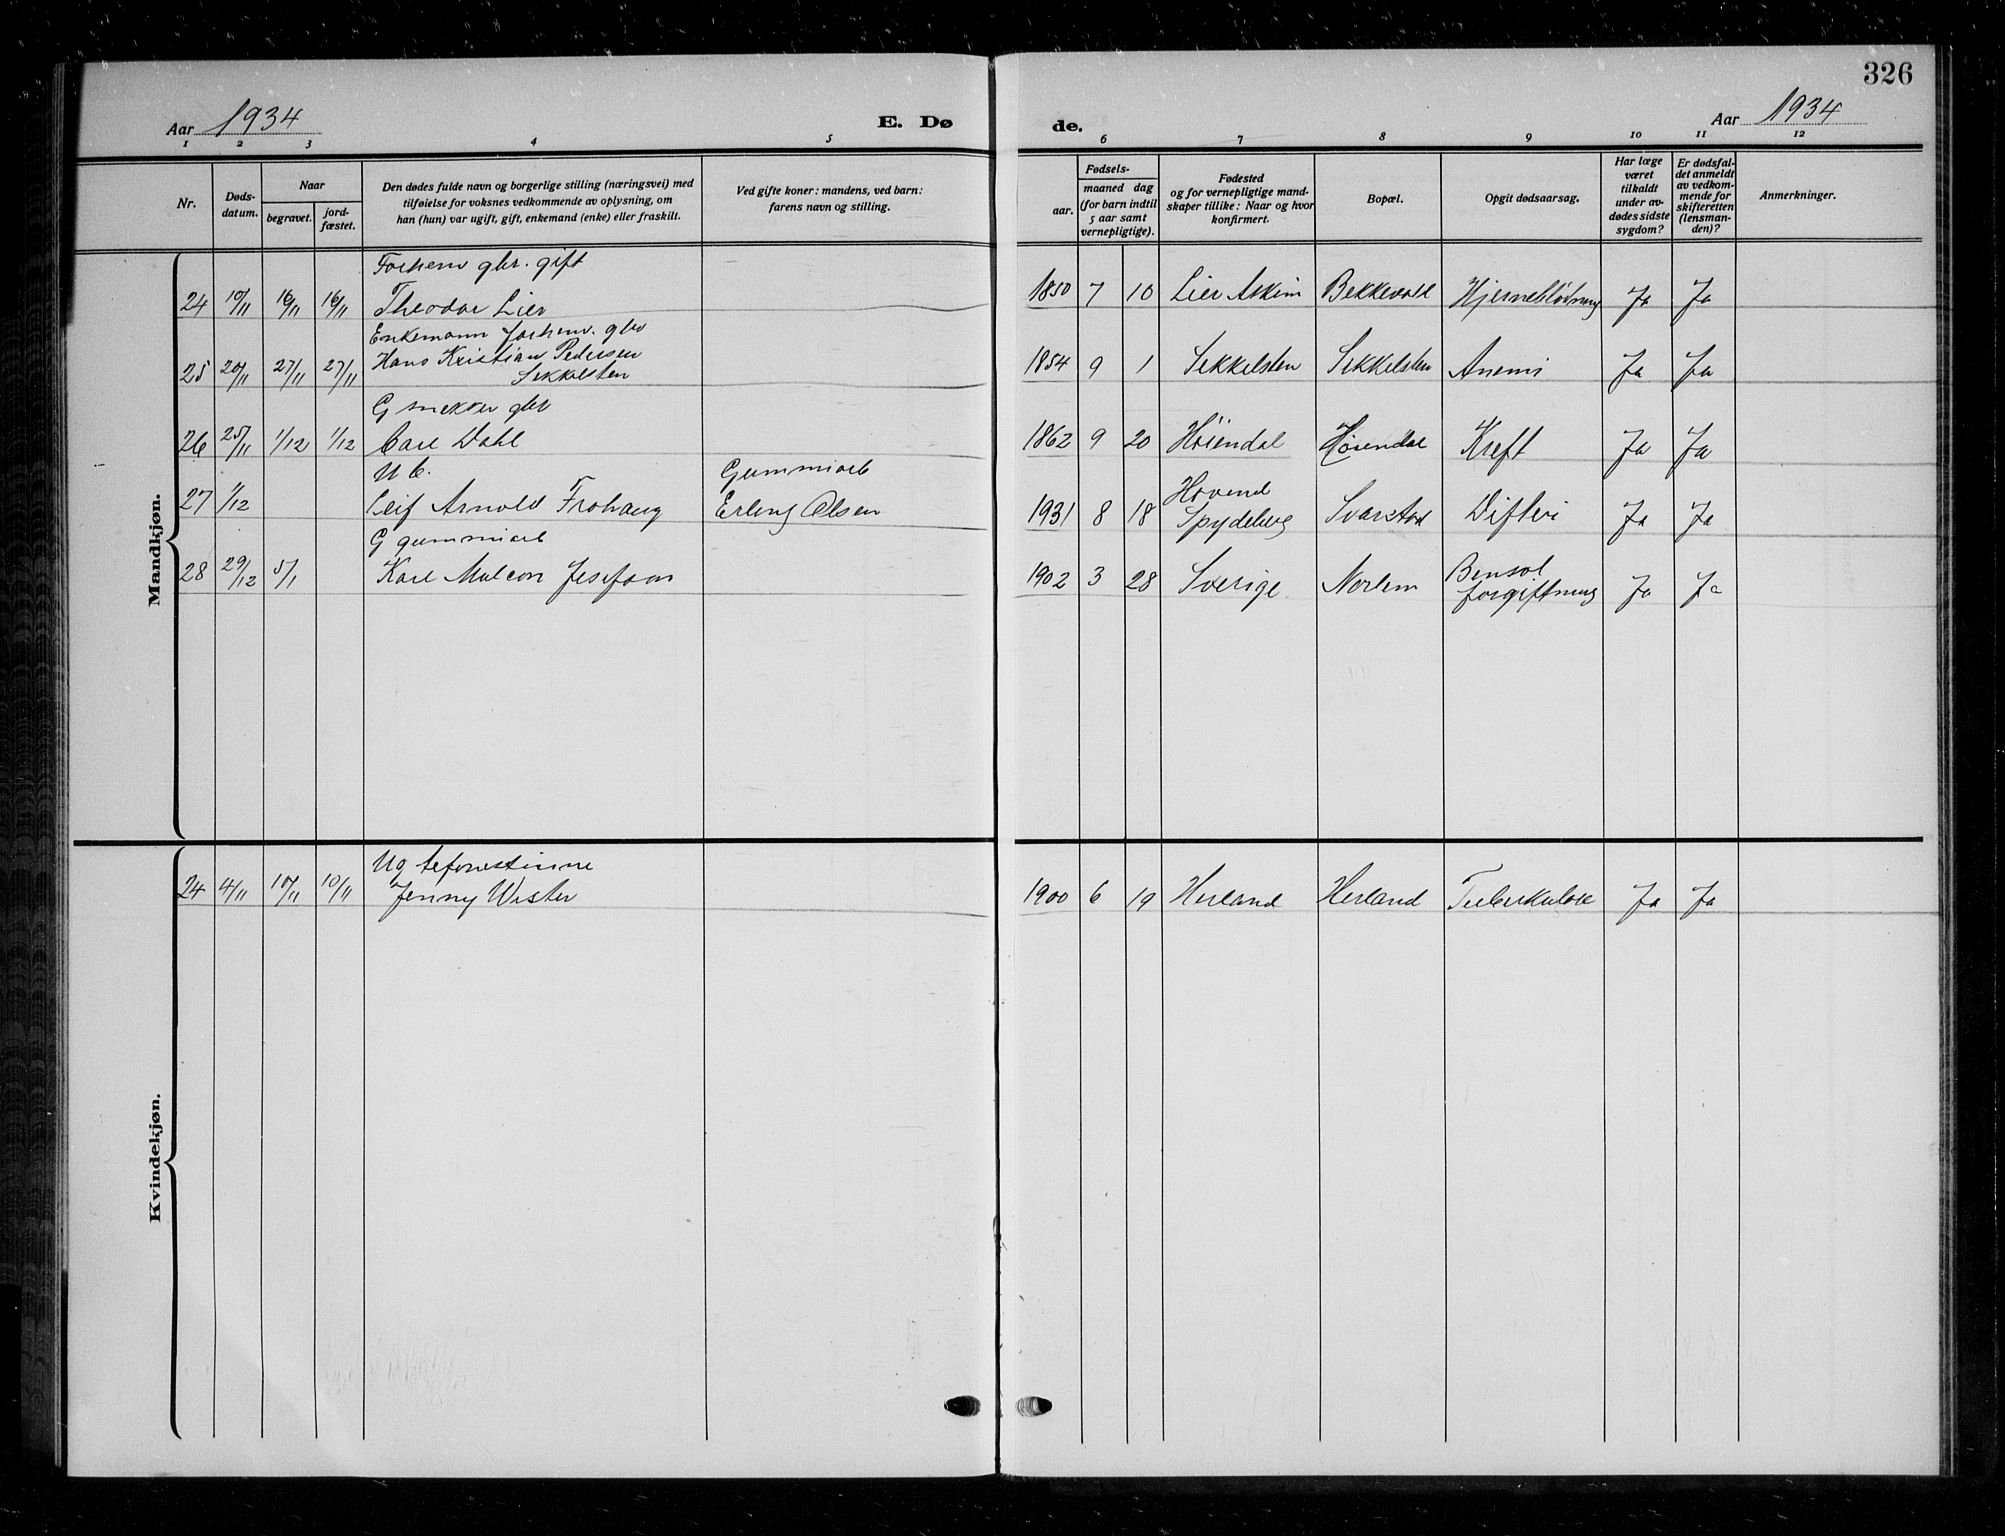 326
Aar 1934
E. Dø
de.
Aar 1934
1 2 3 4 5 6 7 8 9 10 11 12
Nr.
Døds-
datum.
Naar
begravet.
jord-
fæstet.
Den dødes fulde navn og borgerlige stilling (næringsvei) med
tilføielse for voksnes vedkommende av oplysning, om
han (hun) var ugift, gift, enkemand (enke) eller fraskilt.
Ved gifte koner: mandens, ved barn:
farens navn og stilling.
Fødsels-
aar.
maaned dag
(for barn indtil
5 aar samt
vernepligtige).
Fødested
og for vernepligtige mand-
skaper tillike: Naar og hvor
konfirmert.
Bopæl.
Opgit dødsaarsag.
Har læge
været
tilkaldt
under av-
dødes sidste
sygdom?
Er dødsfal-
det anmeldt
av vedkom-
mende for
skifteretten
(lensman-
den)?
Anmerkninger.
Mandkjøn.
Forhenv gbr. gift
24 10/11 16/11 16/11 Theodor Lier 1850 7 10 Lier Askim Bekkevold Hjerneblødning Ja Ja
Enkemann forhenv. gbr
25 20/11 27/11 27/11 Hans Kristian Pedersen 1854 9 1 Sekkelsten Sekkelsten Anemi Ja Ja
Sekkelsten
G snekker gbr
26 25/11 1/12 1/12 Carl Dahl 1862 9 20 Høiendal Høiendal Kreft Ja Ja
U C. Gummiarb
27 1/12 Leif Arnold Frohaug Erling Olsen 1931 8 18 Hovend Spydeberg Svarstad Difteri Ja Ja
G gummiarb
28 29/12 5/1 Karl Josefson 1902 3 28 Sverige Norlem Bensol Ja Ja
forgiftning
Kvindekjøn.
Ug
24 4/11 10/11 10/11 Jenny Wister 1900 6 19 Herland Herland Tuberkulose Ja Ja